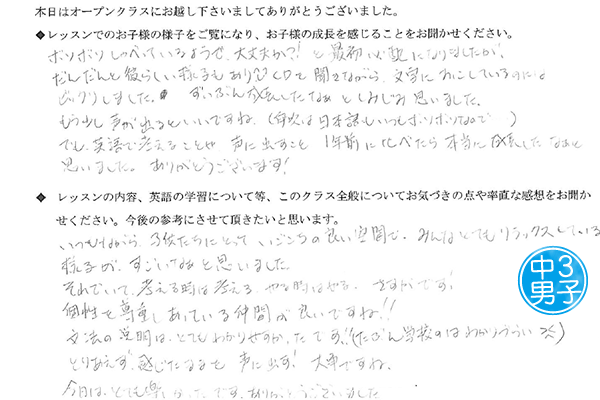 本日はオープンクラスにお越し下さいましてありがとうございました。
◆レッスンでのお子様の様子をご覧になり、お子様の成長を感じることをお聞かせください。
ボソボソしゃべているようで、大丈夫か?! と最初心配になりましたが、
だんだんと彼らしい様子もあり CDを聞きながら、文字におこしているのには
ビックリしました。ずいぶん成長したなぁとしみじみ思いました。
もう少し声が出るといいですね。(自宅は日本語もいつもボソボソなので )
でも、英語で考えることや 声に出すこと 1年前に比べたら本当に成長したなぁと
思いました。ありがとうございます!
◆ レッスンの内容、英語の学習について等、このクラス全般についてお気づきの点や率直な感想をお聞か
せください。今後の参考にさせて頂きたいと思います。
いつもながら、子供たちにとって いごこちの良い空間で、みんなとてもリラックスしている
様子が、すごいなぁと思いました。
それでいて、考える時は考える、やる時はやる、さすがです!
個性を尊重しあっている仲間が良いですね!!
文法の説明は、とてもわかりやすかったです!!(たぶん学校のはわかりづらい )
とりあえず、感じたままを 声に出す! 大事ですね。
今日は、とても楽しかったです。ありがとうございました
中3
男子